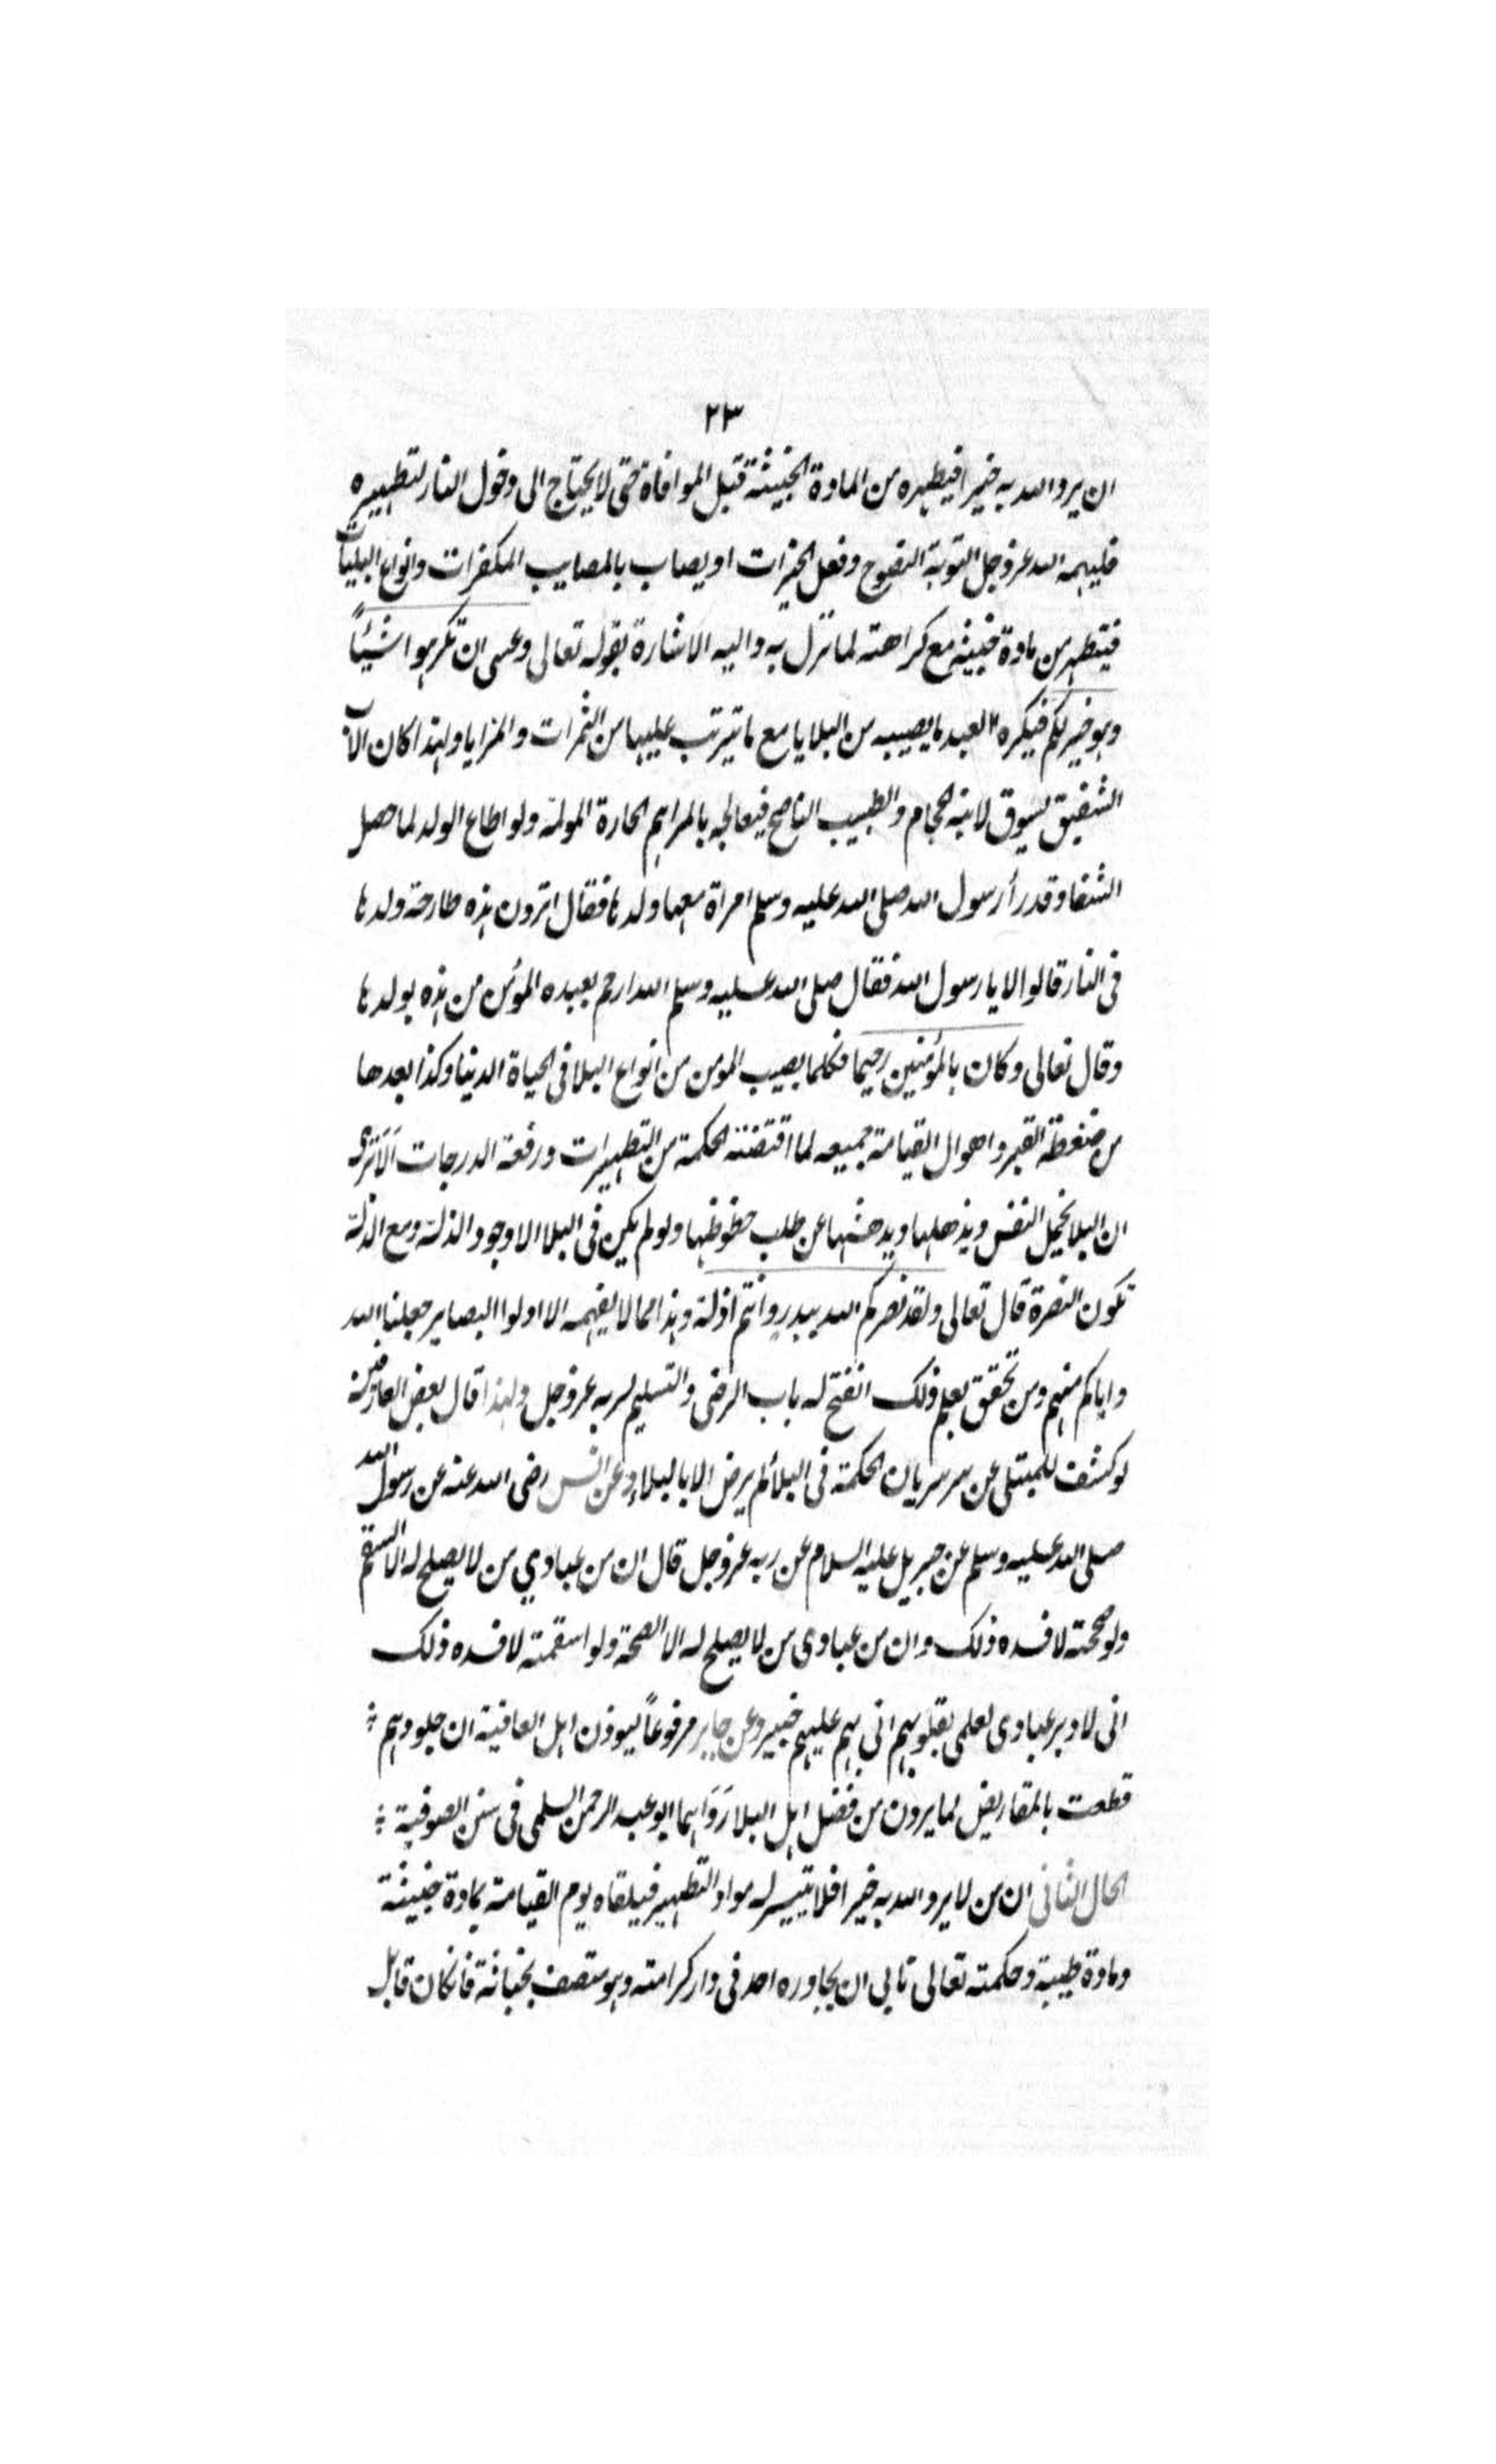 ٢٣
ان يرد الله به خيرا فيطهره من المادة الخبيثة قبل الموافاة حتى لا يحتاج الى دخول النار لتطهيره
فليهمه الله عز وجل التوبة النصوح وفعل الخيرات او يصاب بالمصايب المكفرات وانواع البليات
فيتطهر من مادة خبيثه مع كراهته لما نزل به واليه الاشارة بقوله تعالى وعسى ان تكرهوا شيئاً
وهو خير لكم فيكره العبد ما يصيبه من البلايا مع ما يترتب عليها من الثمرات والمزايا ولهذا كان الاب
الشفيق يسوق لابنه الحجام والطبيب الناصح فيعالجه بالمراهم الحارة المولمة ولو اطاع الولد لما حصل
الشفا وقد رأ رسول الله صلى الله عليه وسلم امراة معها ولدها فقال اترون هذه طارحة ولدها
فى النار قالوا لا يا رسول الله فقال صلى الله عليه وسلم الله ارحم بعبده المؤمن من هذه بولدها
وقال تعالى وكان بالمؤمنين رحيما فكلما يصيب المومن من انواع البلا فى الحياة الدنيا وكذا بعدها
من ضغطة القبر واهوال القيامة جميعه لما اقتضته الحكمة من التطهيرات ورفعة الدرجات الَاَ ترى
ان البلا يخمل النفس ويذهلها ويدهشها عن طلب حظوظها ولو لم يكن فى البلا الا وجود الذلة ومع الذلة
تكون النصرة قال تعالى ولقد نصركم الله ببدرٍ وانتم اذلة وهذا مما لا يفهمه الا اولوا البصاير جعلنا الله
واياكم منهم ومن تحقق بعلم ذلك انفتح له باب الرضى والتسليم لربه عز وجل ولهذا قال بعض العارفين
لو كشف للمبتلى عن سر سريان الحكمة فى البلأ لم يرض الا بالبلاء وعن انس رضى الله عنه عن رسول الله
صلى الله عليه وسلم عن جبريل عليه السلام عن ربه عز وجل قال ان من عبادي من لا يصلح له الا السقم
ولو صححته لافسده ذلك وان من عبادى من لا يصلح له الا الصحة ولو اسقمته لافسده ذلك
انى لادبر عبادى لعلمى بقلوبهم انى بهم عليهم خبير وعن جابر مرفوعاً ليودن اهل العافية ان جلودهم
قطعت بالمقاريض لما يرون من فضل اهل البلا رَوَاهما ابو عبد الرحمن السلمى فى سنن الصوفية
الحال الثانى ان من لا يرد الله به خيرا فلا تتيسر له مواد التطهير فيلقاه يوم القيامة بمادة خبيثة
ومادة طيبة وحكمته تعالى تابى ان يجاوره احد فى دار كرامته وهو متصف بخباثة فانكان قابل